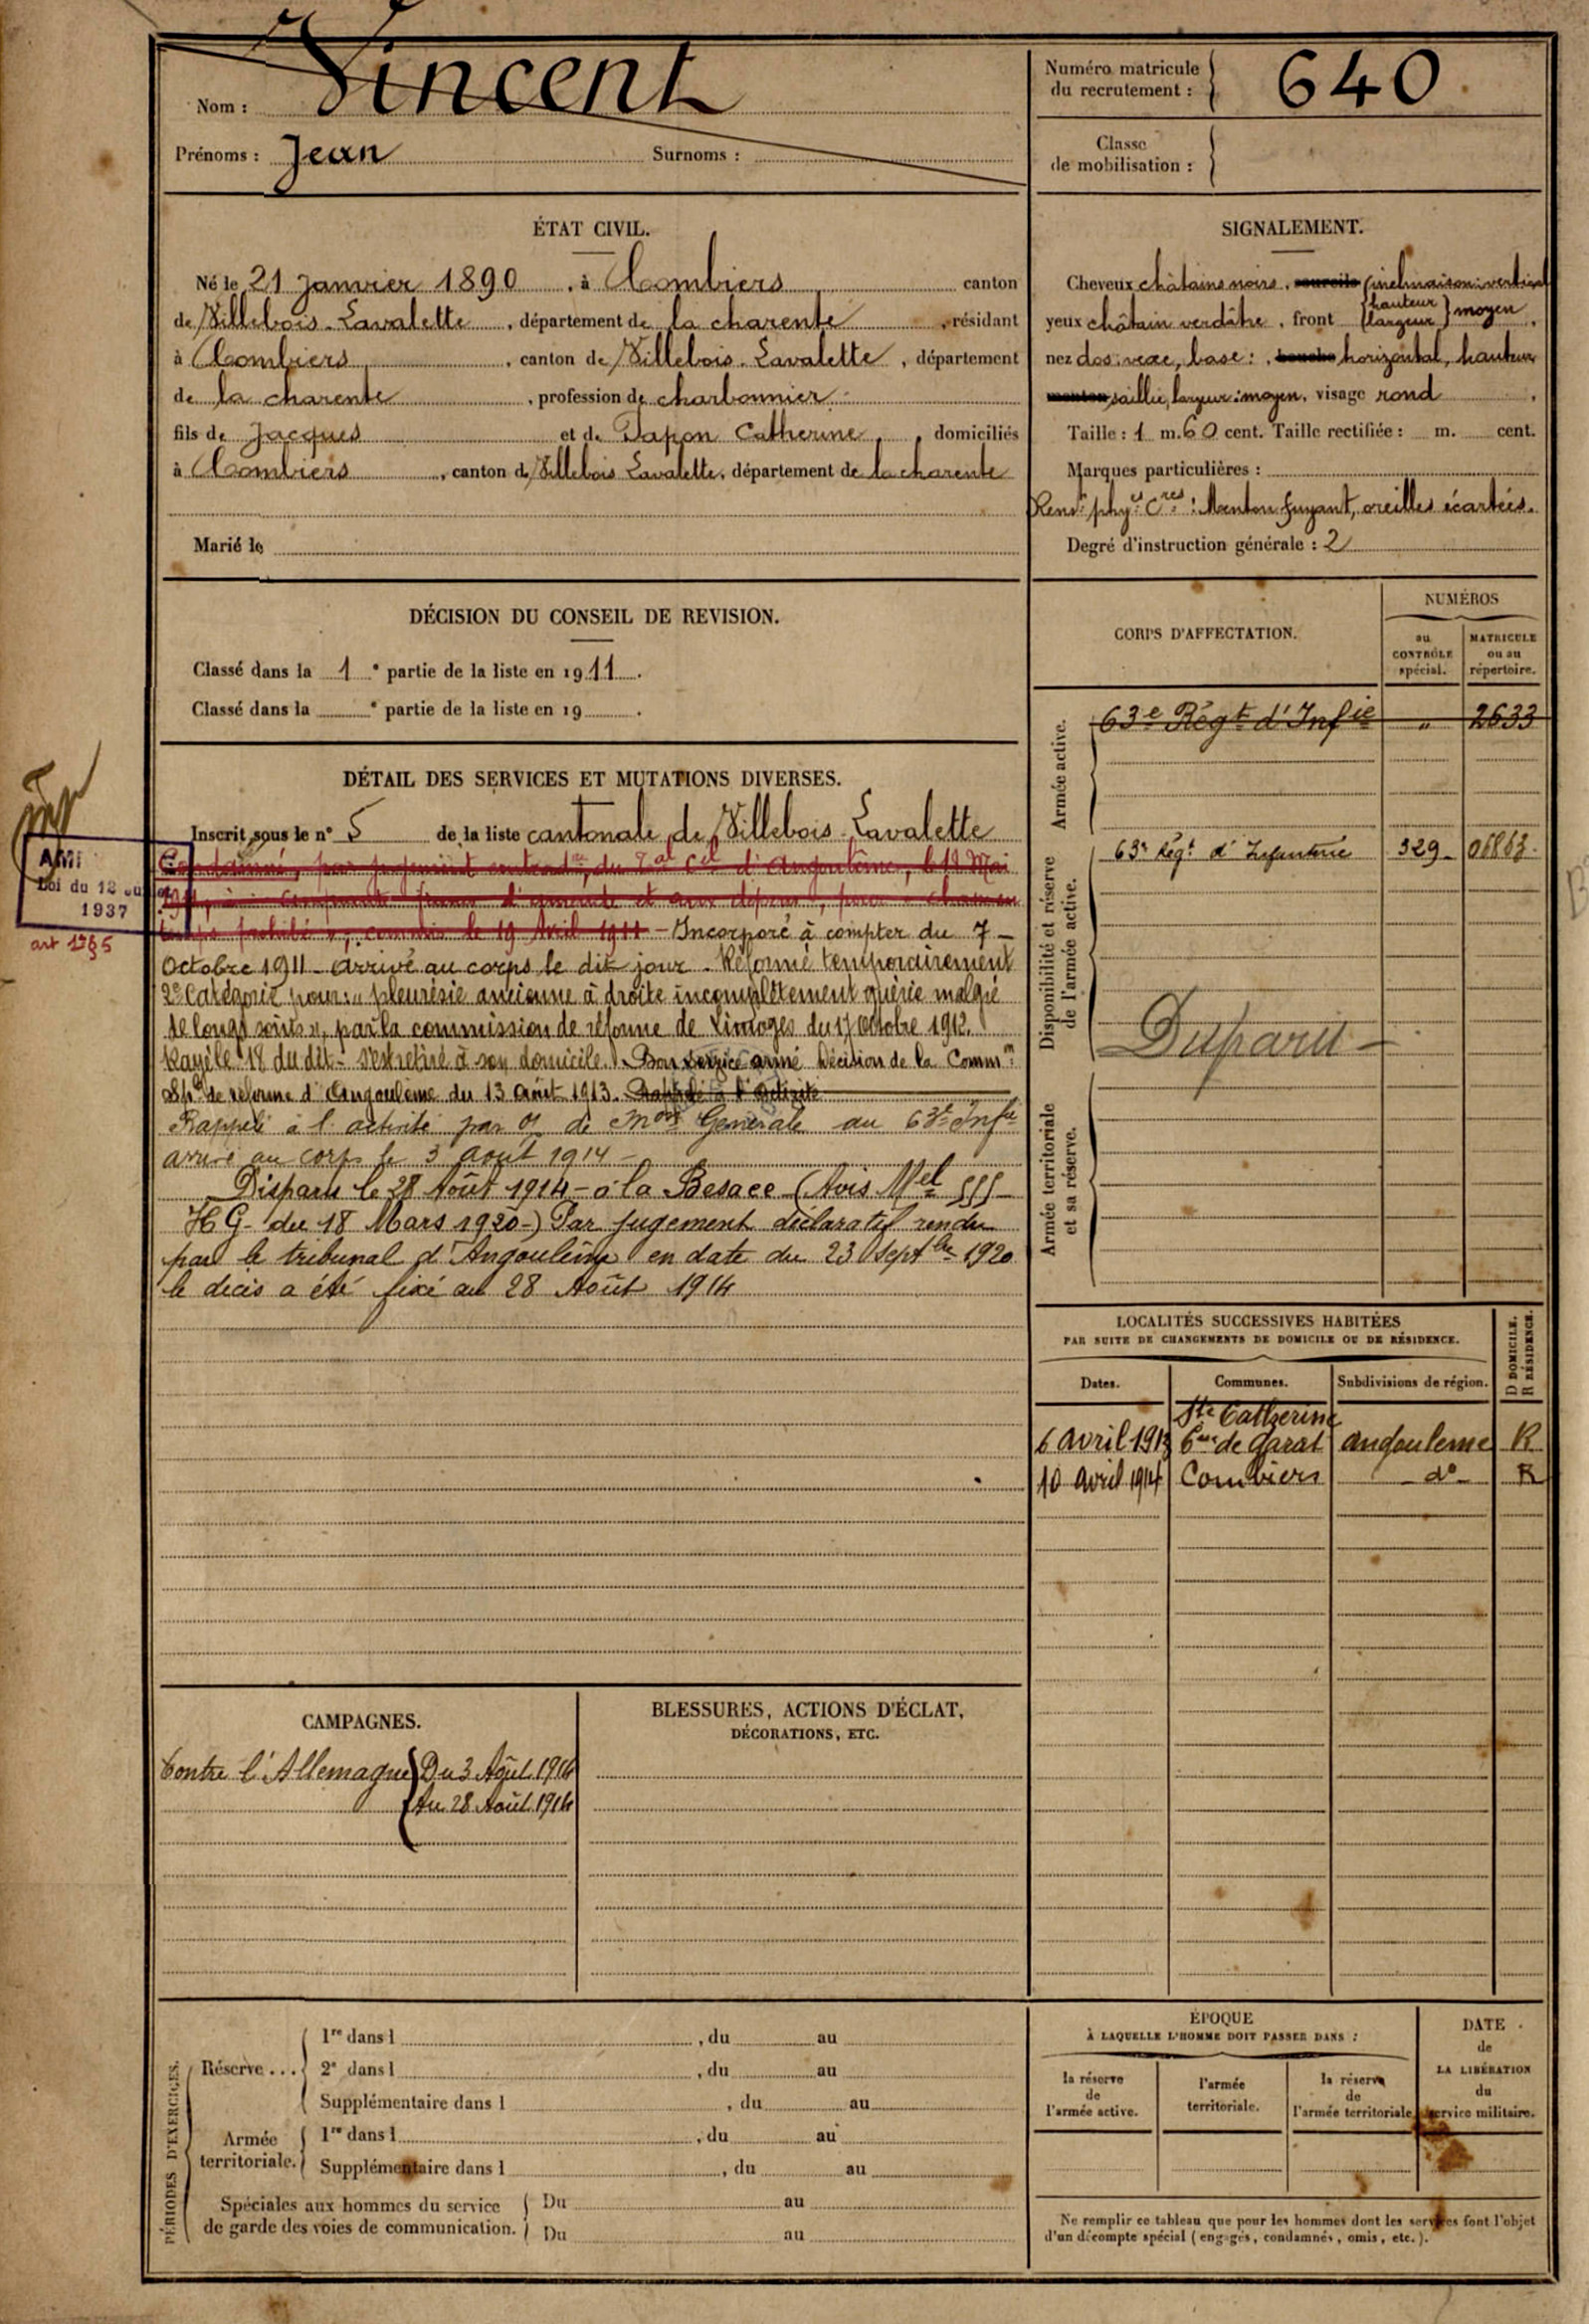 Nom : Vincent
Prénoms : Jean Surnoms :
Numéro matricule
du recrutement : 640
Classe
de mobilisation :
ÉTAT CIVIL.
Né le 21 Janvier 1890, à Combiers canton
de Villebois-Lavalette, département de la charente, résidant
à Combiers, canton de Villebois-Lavalette, département
de la charente, profession de charbonnier
fils de Jacques et de Papon Catherine, domiciliés
à Combiers, canton de Villebois Lavalette, département de la charente
Marié le
SIGNALEMENT.
Cheveux châtains noirs, sourcils (inclinaison: vertical
yeux châtain verdâtre, front hauteur largeur moyen,
nez dos: vexe, base: bouche horizontal, hauteur
menton saillie, largeur: moyen, visage rond,
Taille : 1 m. 60 cent. Taille rectifiée : m. cent.
Marques particulières :
Rensts physs Cres : Menton fuyant, oreilles écartées.
Degré d'instruction générale : 2
DÉCISION DU CONSEIL DE REVISION.
Classé dans la 1e partie de la liste en 1911.
Classé dans la e partie de la liste en 19 .
CORPS D'AFFECTATION.
NUMÉROS
au
CONTRÔLE
spécial.
MATRICULE
ou au
répertoire.
Armée active.
63e Régt d'Infie " 2633
Disponibilité et réserve
de l'armée active.
63e Régt d'Infanterie 329 06863
Disparu
Armée territoriale
et sa réserve.
DÉTAIL DES SERVICES ET MUTATIONS DIVERSES.
Inscrit sous le n° 5 de la liste cantonale de Villebois Lavalette
Condamné, par jugement du d'Angoulême, le 12 Mai
1911, à d'amende et aux dépens, pour
prohibé, commis le 19 Avril 1911 - Incorporé à compter du 7-
Octobre 1911 - arrivé au corps le dit jour. Réformé temporairement
2e Catégorie pour: "pleurésie ancienne à droite incomplètement guérie malgré
de longs soins", par la commission de réforme de Limoges du 17 Octobre 1912.
Rayé le 18 du dit - S'est retiré à son domicile. Bon service armé Décision de la Common
Sple de réforme d'Angoulême du 13 Août 1913. Rappelé à l'activité
Rappelé à l'activité par O. de Mon Générale au 63e Infie
arrivé au corps le 3 août 1914 -
Disparu le 28 Août 1914 - à la Besace (Avis Mel
HG - du 18 Mars 1920 -) Par jugement déclaratif rendu
par le tribunal d'Angoulême en date du 23 Septbre 1920
le décès a été fixé au 28 Août 1914
Loi du 12
1937
art 1er §5
LOCALITÉS SUCCESSIVES HABITÉES
PAR SUITE DE CHANGEMENTS DE DOMICILE OU DE RÉSIDENCE.
D DOMICILE.
R RÉSIDENCE.
Dates. Communes. Subdivisions de région.
Ste Catherine
6 avril 1913 Cne de Garat angouleme R
10 avril 1914 Combiers do R
CAMPAGNES.
Contre l'Allemagne Du 3 Août 1914
Au 28 Août 1914
BLESSURES, ACTIONS D'ÉCLAT,
DÉCORATIONS, ETC.
PÉRIODES D'EXERCICES.
Réserve...
1re dans l , du au
2e dans l , du au
Supplémentaire dans l , du au
Armée
territoriale.
1re dans l , du au
Supplémentaire dans l , du au
Spéciales aux hommes du service
de garde des voies de communication.
Du au
Du au
ÉPOQUE
À LAQUELLE L'HOMME DOIT PASSER DANS :
la réserve
de
l'armée active.
l'armée
territoriale.
la réserve
de
l'armée territoriale.
DATE
de
LA LIBÉRATION
du
service militaire.
Ne remplir ce tableau que pour les hommes dont les services font l'objet
d'un décompte spécial (engagés, condamnés, omis, etc.).